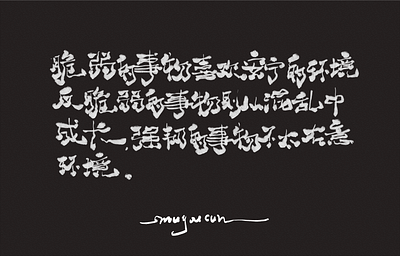 脆弱的事物喜欢安宁的环境
反脆弱的事物则从混乱中
成长，强韧的事物不太在意
环境。